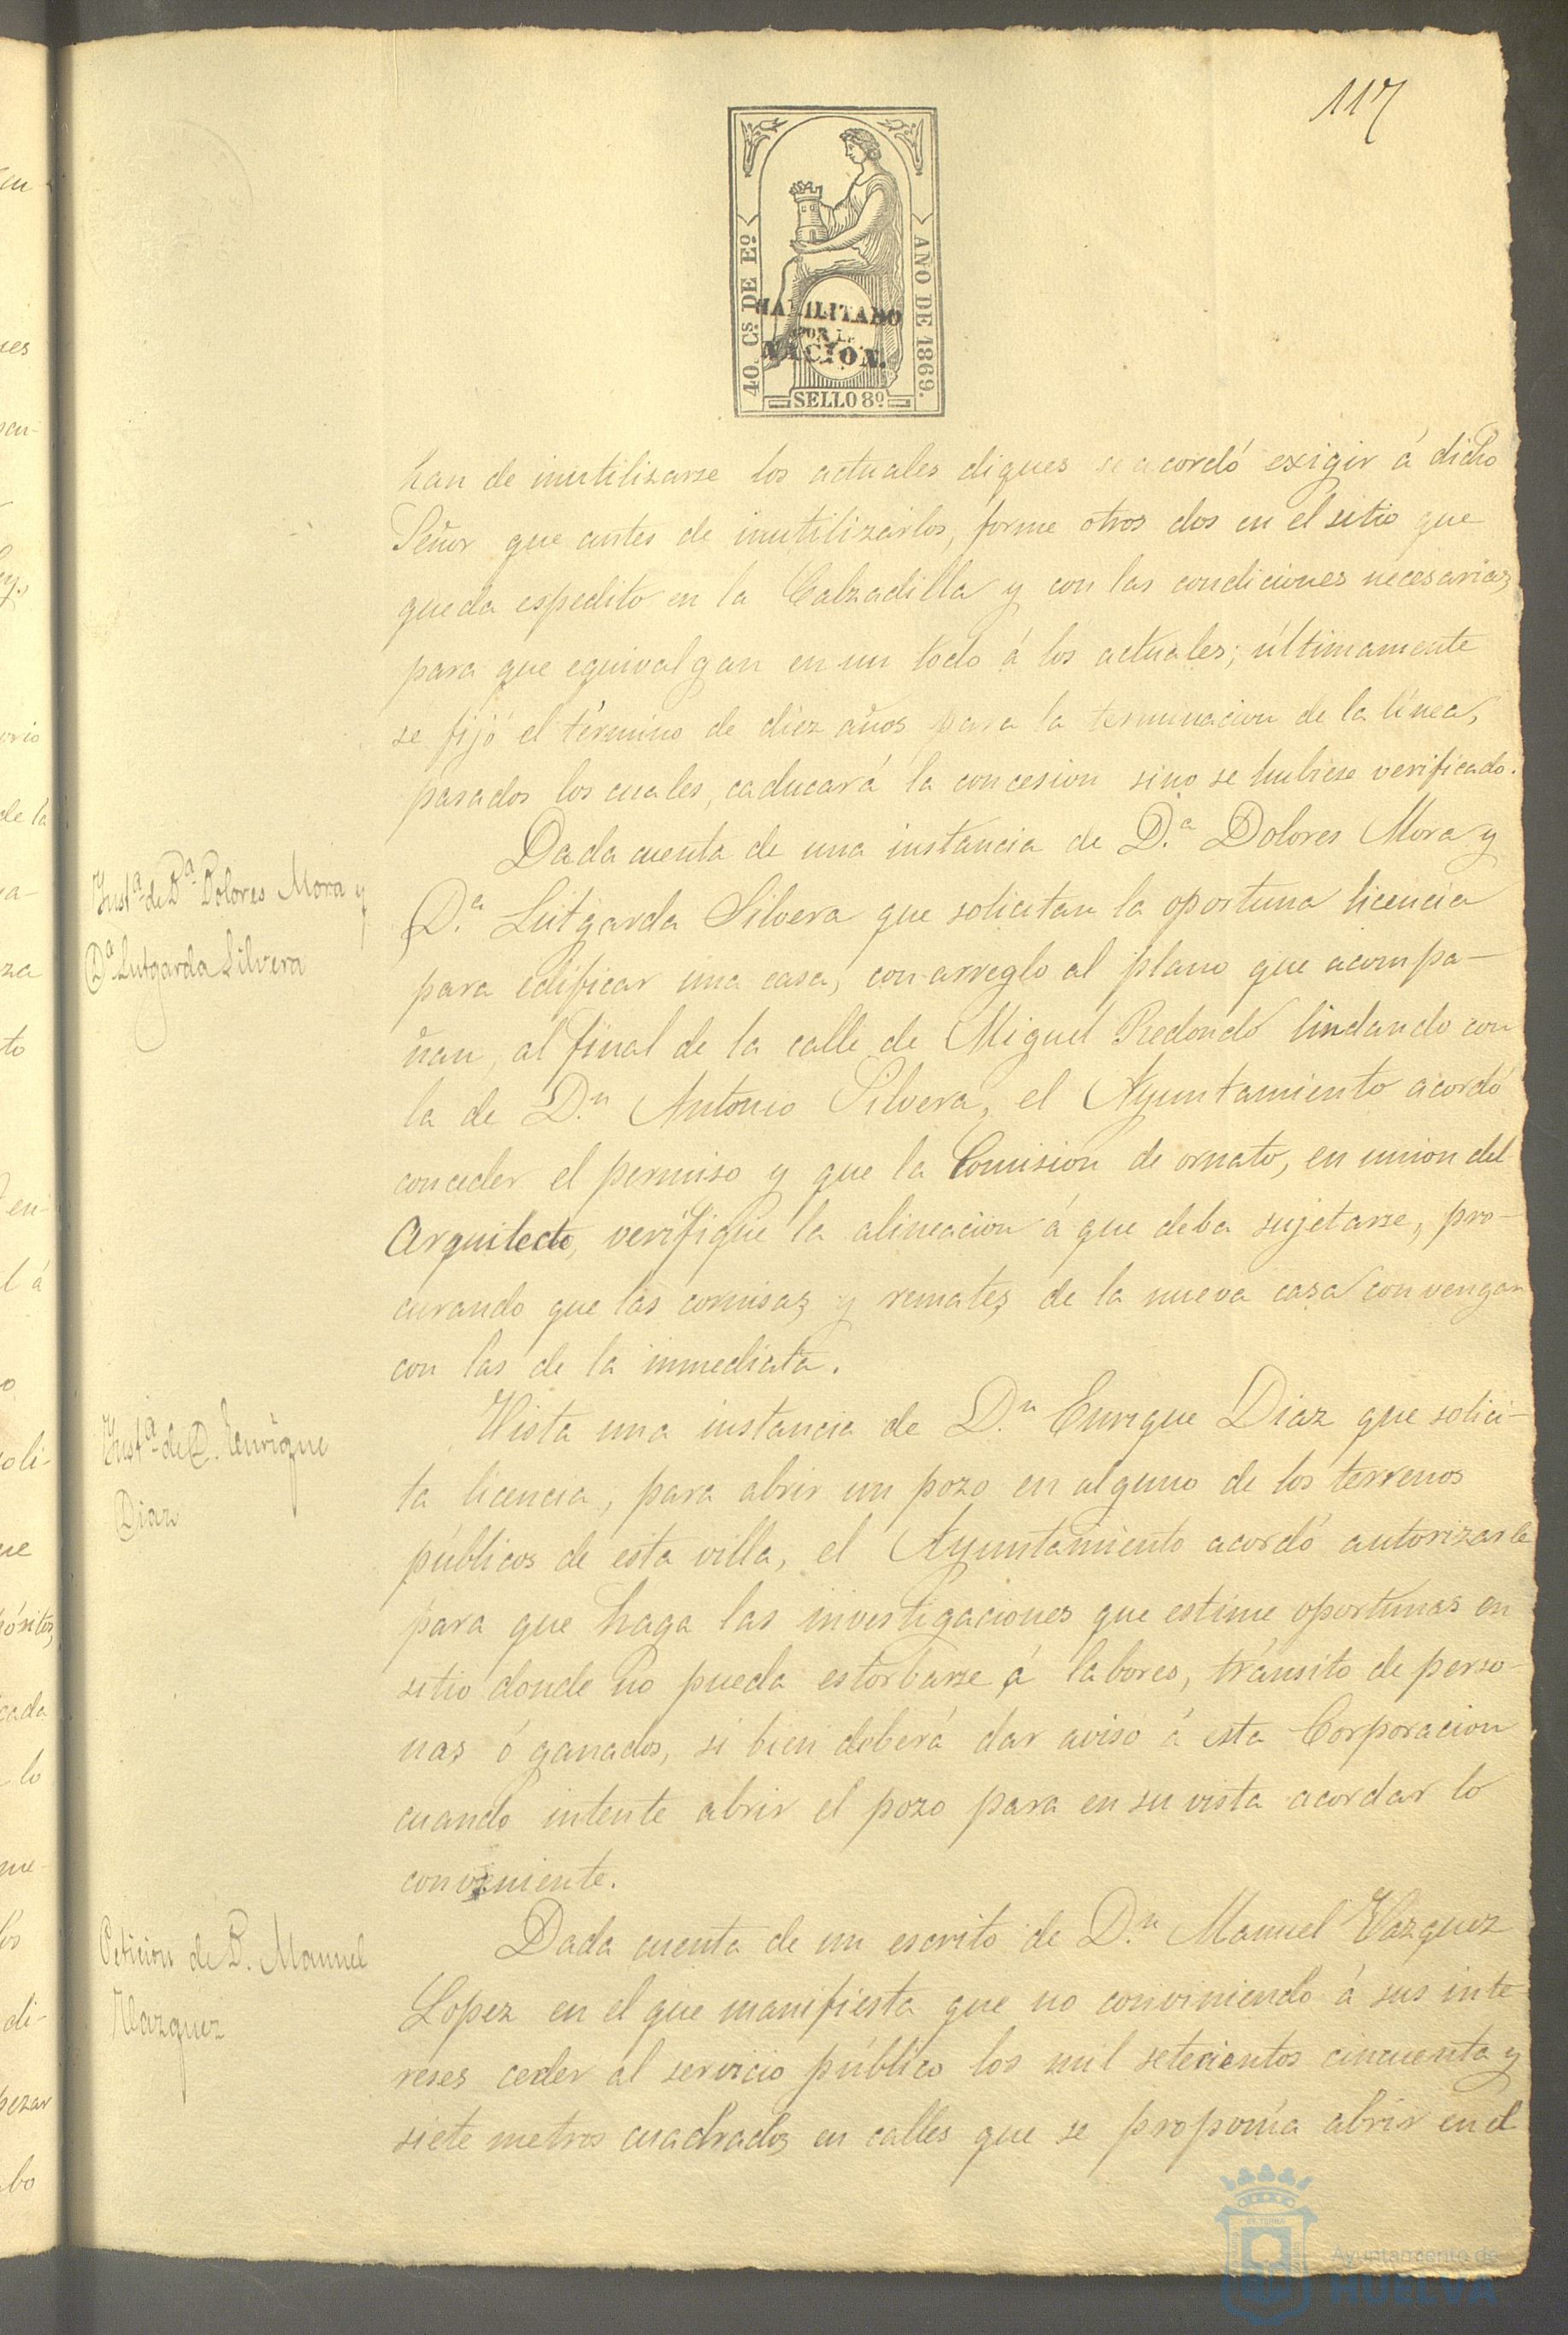 117
40 Cs. DE Eº
AÑO DE 1869.
HABILITADO
POR LA
NACION.
SELLO 8º
han de inutilizarse los actuales diques se acordó exigir á dicho
Señor que antes de inutilizarlos, forme otros dos en el sitio que
queda espedito en la Calzadilla y con las condiciones necesarias,
para que equivalgan en un todo á los actuales; últimamente
se fijó el término de diez años para la terminacion de la línea,
pasados los cuales, caducará la concesion sino se hubiese verificado.
Instª de Dª Dolores Mora y
Dª Lutgarda Silvera
Dada cuenta de una instancia de D.ª Dolores Mora y
D.ª Lutgarda Silvera que solicitan la oportuna licencia
para edificar una casa, con arreglo al plano que acompa-
ñan, al final de la calle de Miguel Redondo lindando con
la de D.n Antonio Silvera, el Ayuntamiento acordó
conceder el permiso y que la Comision de ornato, en union del
Arquitecto, verifique la alineacion á que deba sujetarse, pro-
curando que las cornisas y remates de la nueva casa convengan
con las de la inmediata.
Instª de D. Enrique
Diaz
Vista una instancia de D.n Enrique Diaz que solici-
ta licencia, para abrir un pozo en alguno de los terrenos
públicos de esta villa, el Ayuntamiento acordó autorizarle
para que haga las investigaciones que estime oportunas en
sitio donde no pueda estorbarse á labores, tránsito de perso-
nas ó ganados, si bien deberá dar aviso á esta Corporacion
cuando intente abrir el pozo para en su vista acordar lo
conveniente.
Peticion de D. Manuel
Vazquez
Dada cuenta de un escrito de D.n Manuel Vazquez
Lopez en el que manifiesta que no conviniendo á sus inte-
reses ceder al servicio público los mil setecientos cincuenta y
siete metros cuadrados en calles que se proponia abrir en el
Ayuntamiento de
HUELVA